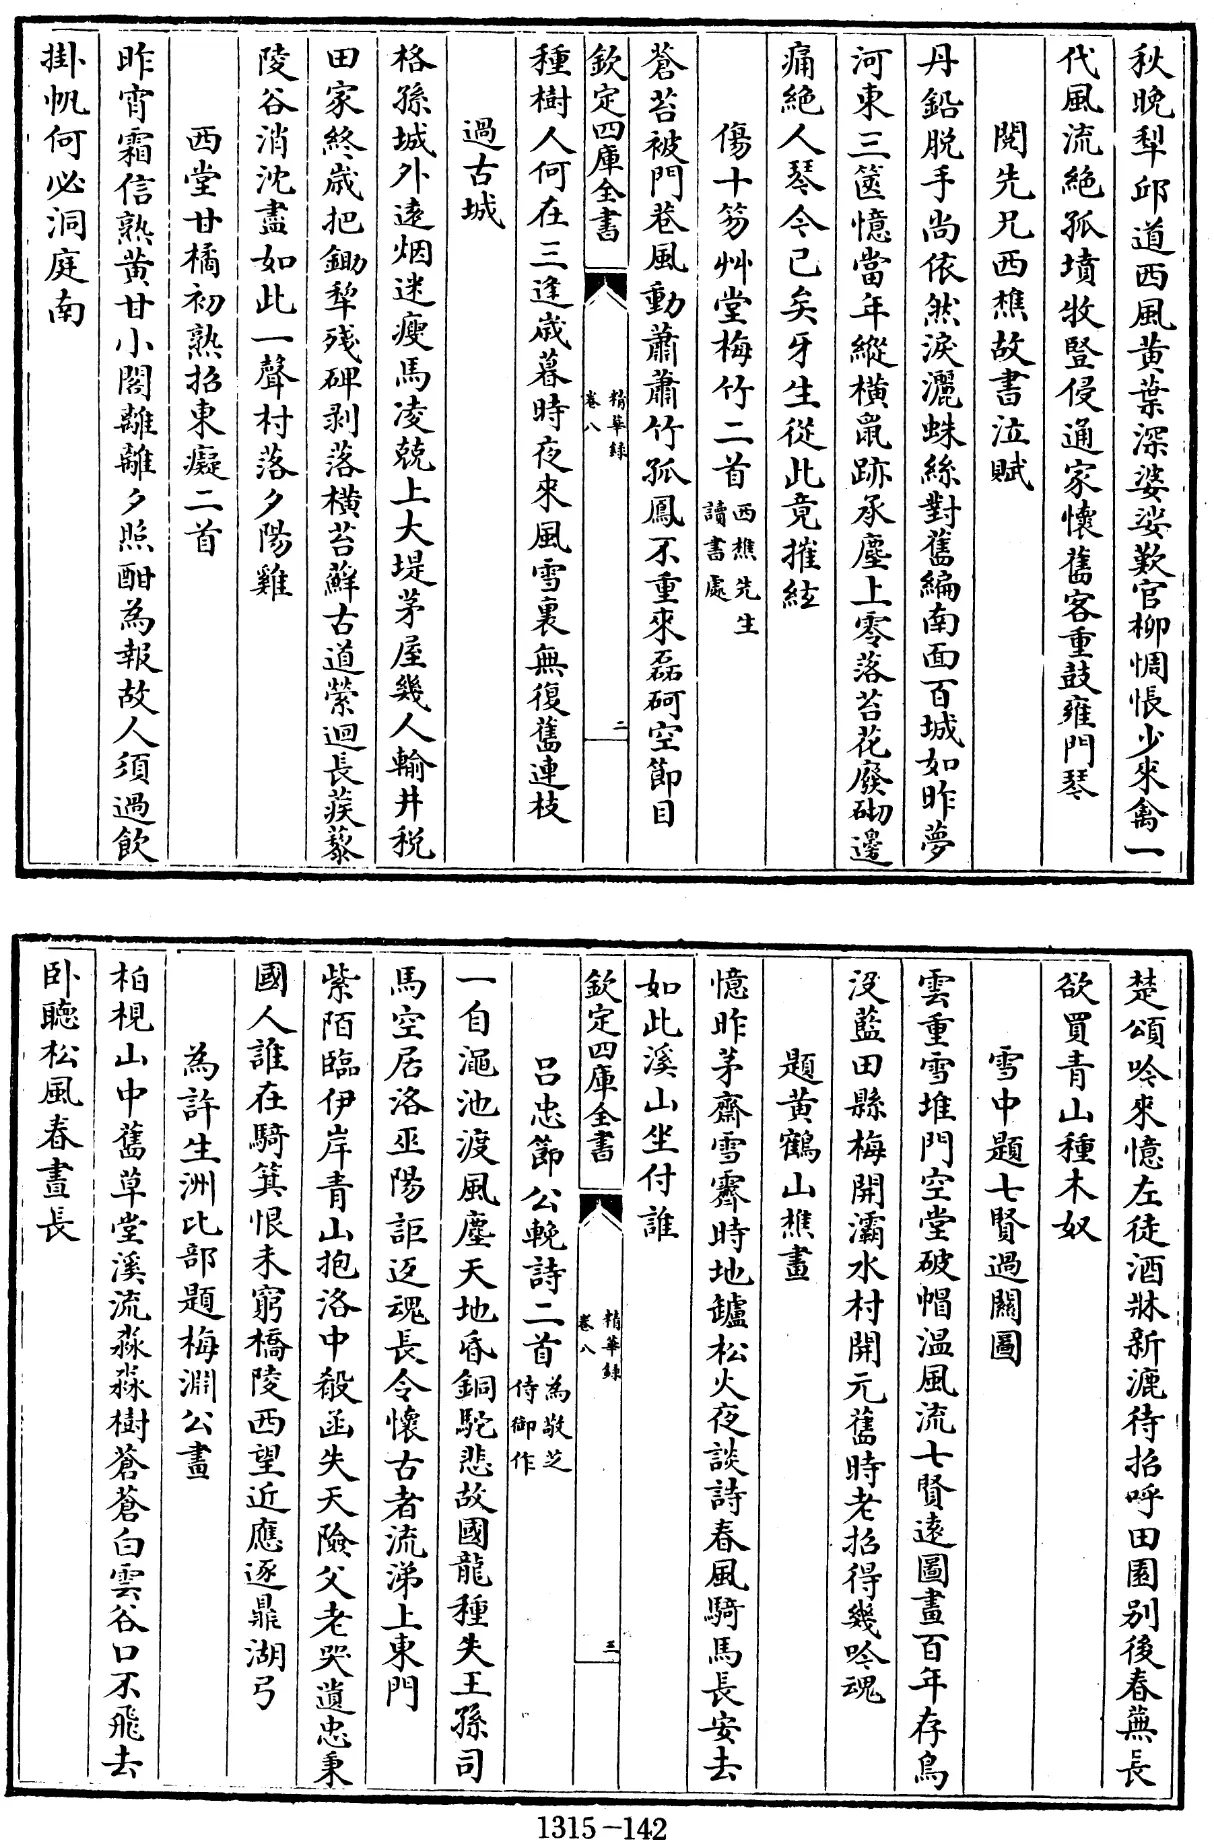 秋晚犁邱道西風黃葉深婆娑歎官柳惆悵少來禽一
代風流絶孤墳牧豎侵通家懷舊客重鼓雍門琴
閱先兄西樵故書泣賦
丹鉛脱手尚依然淚灑蛛絲對舊編南面百城如昨夢
河東三篋憶當年縱橫鼠跡承塵上零落苔花廢砌邊
痛絶人琴今已矣牙生從此竟摧絃
傷十笏艸堂梅竹二首西樵先生讀書處
蒼苔被門巷風動蕭蕭竹孤鳳不重來磊砢空節目
欽定四庫全書 精華録 卷八 二
種樹人何在三逢歲暮時夜來風雪裏無復舊連枝
過古城
格孫城外遠烟迷瘦馬凌兢上大堤茅屋幾人輸井税
田家終歲把鋤犂殘碑剥落橫苔蘚古道縈迴長蒺藜
陵谷消沈盡如此一聲村落夕陽雞
西堂甘橘初熟招東癡二首
昨宵霜信熟黄甘小閣離離夕照酣為報故人須過飲
掛帆何必洞庭南
楚頌吟來憶左徒酒牀新漉待招呼田園别後春蕪長
欲買青山種木奴
雪中題七賢過關圖
雲重雪堆門空堂破帽温風流七賢遠圖畫百年存鳥
没藍田縣梅開灞水村開元舊時老招得幾吟魂
題黄鶴山樵畫
憶昨茅齋雪霽時地鑪松火夜談詩春風騎馬長安去
如此溪山坐付誰
欽定四庫全書 精華録 卷八 三
吕忠節公輓詩二首為敬芝侍御作
一自澠池渡風塵天地昏銅駝悲故國龍種失王孫司
馬空居洛巫陽詎返魂長令懷古者流涕上東門
紫陌臨伊岸青山抱洛中殽函失天險父老哭遺忠秉
國人誰在騎箕恨未窮橋陵西望近應逐鼎湖弓
為許生洲比部題梅淵公畫
柏梘山中舊草堂溪流淼淼樹蒼蒼白雲谷口不飛去
卧聽松風春晝長
1315-142